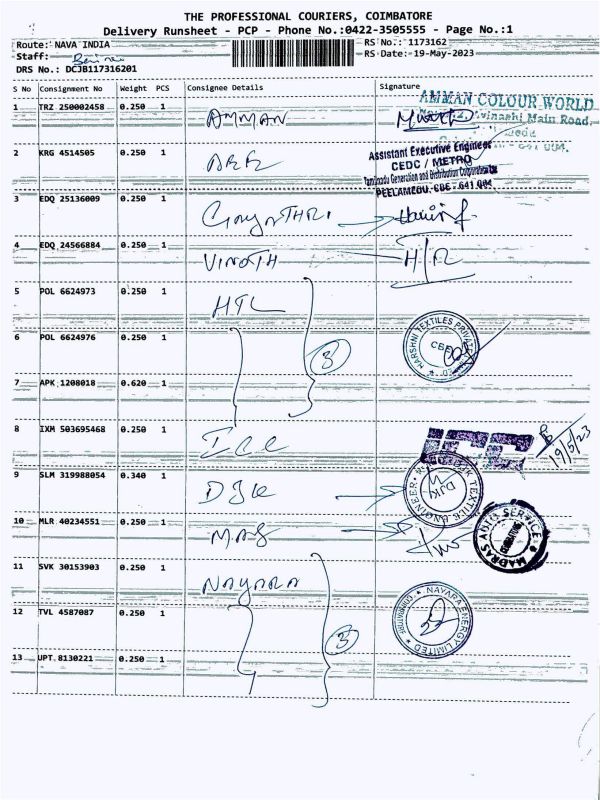 THE PROFESSIONAL COURIERS, COIMBATORE
Delivery Runsheet - PCP - Phone No.:0422-3505555 - Page No.:1
Route: NAVA INDIA RS No.: 1173162
Staff: RS Date: 19-May-2023
DRS No.: DCJB117316201
S No Consignment No Weight PCS Consignee Details Signature
1 TRZ 250002458 0.250 1 AMMAN AMMAN COLOUR WORLD
Avinashi Main Road,
641 004.
2 KRG 4514505 0.250 1 Assistant Executive Engineer
CEDC / METRO
Tamilnadu Generation and Distribution Corporation Ltd
PEELAMEDU, CBE - 641 004.
3 EDQ 25136009 0.250 1 GAYATHRI
4 EDQ 24566884 0.250 1 VINOTH H/R
5 POL 6624973 0.250 1 HTL
HARSHNI TEXTILES PRIVATE LIMITED
CBE
6 POL 6624976 0.250 1 3
7 APK 1208018 0.620 1
8 IXM 503695468 0.250 1 ICC ICC 19/5/23
9 SLM 319988054 0.340 1 DJK DJK TEXTILE ENGINEER
10 MLR 40234551 0.250 1 MAS MADRAS AUTO SERVICE
COIMBATORE
11 SVK 30153903 0.250 1 NAYARA
NAYARA ENERGY LIMITED
COIMBATORE
12 TVL 4587087 0.250 1 3
13 UPT 8130221 0.250 1